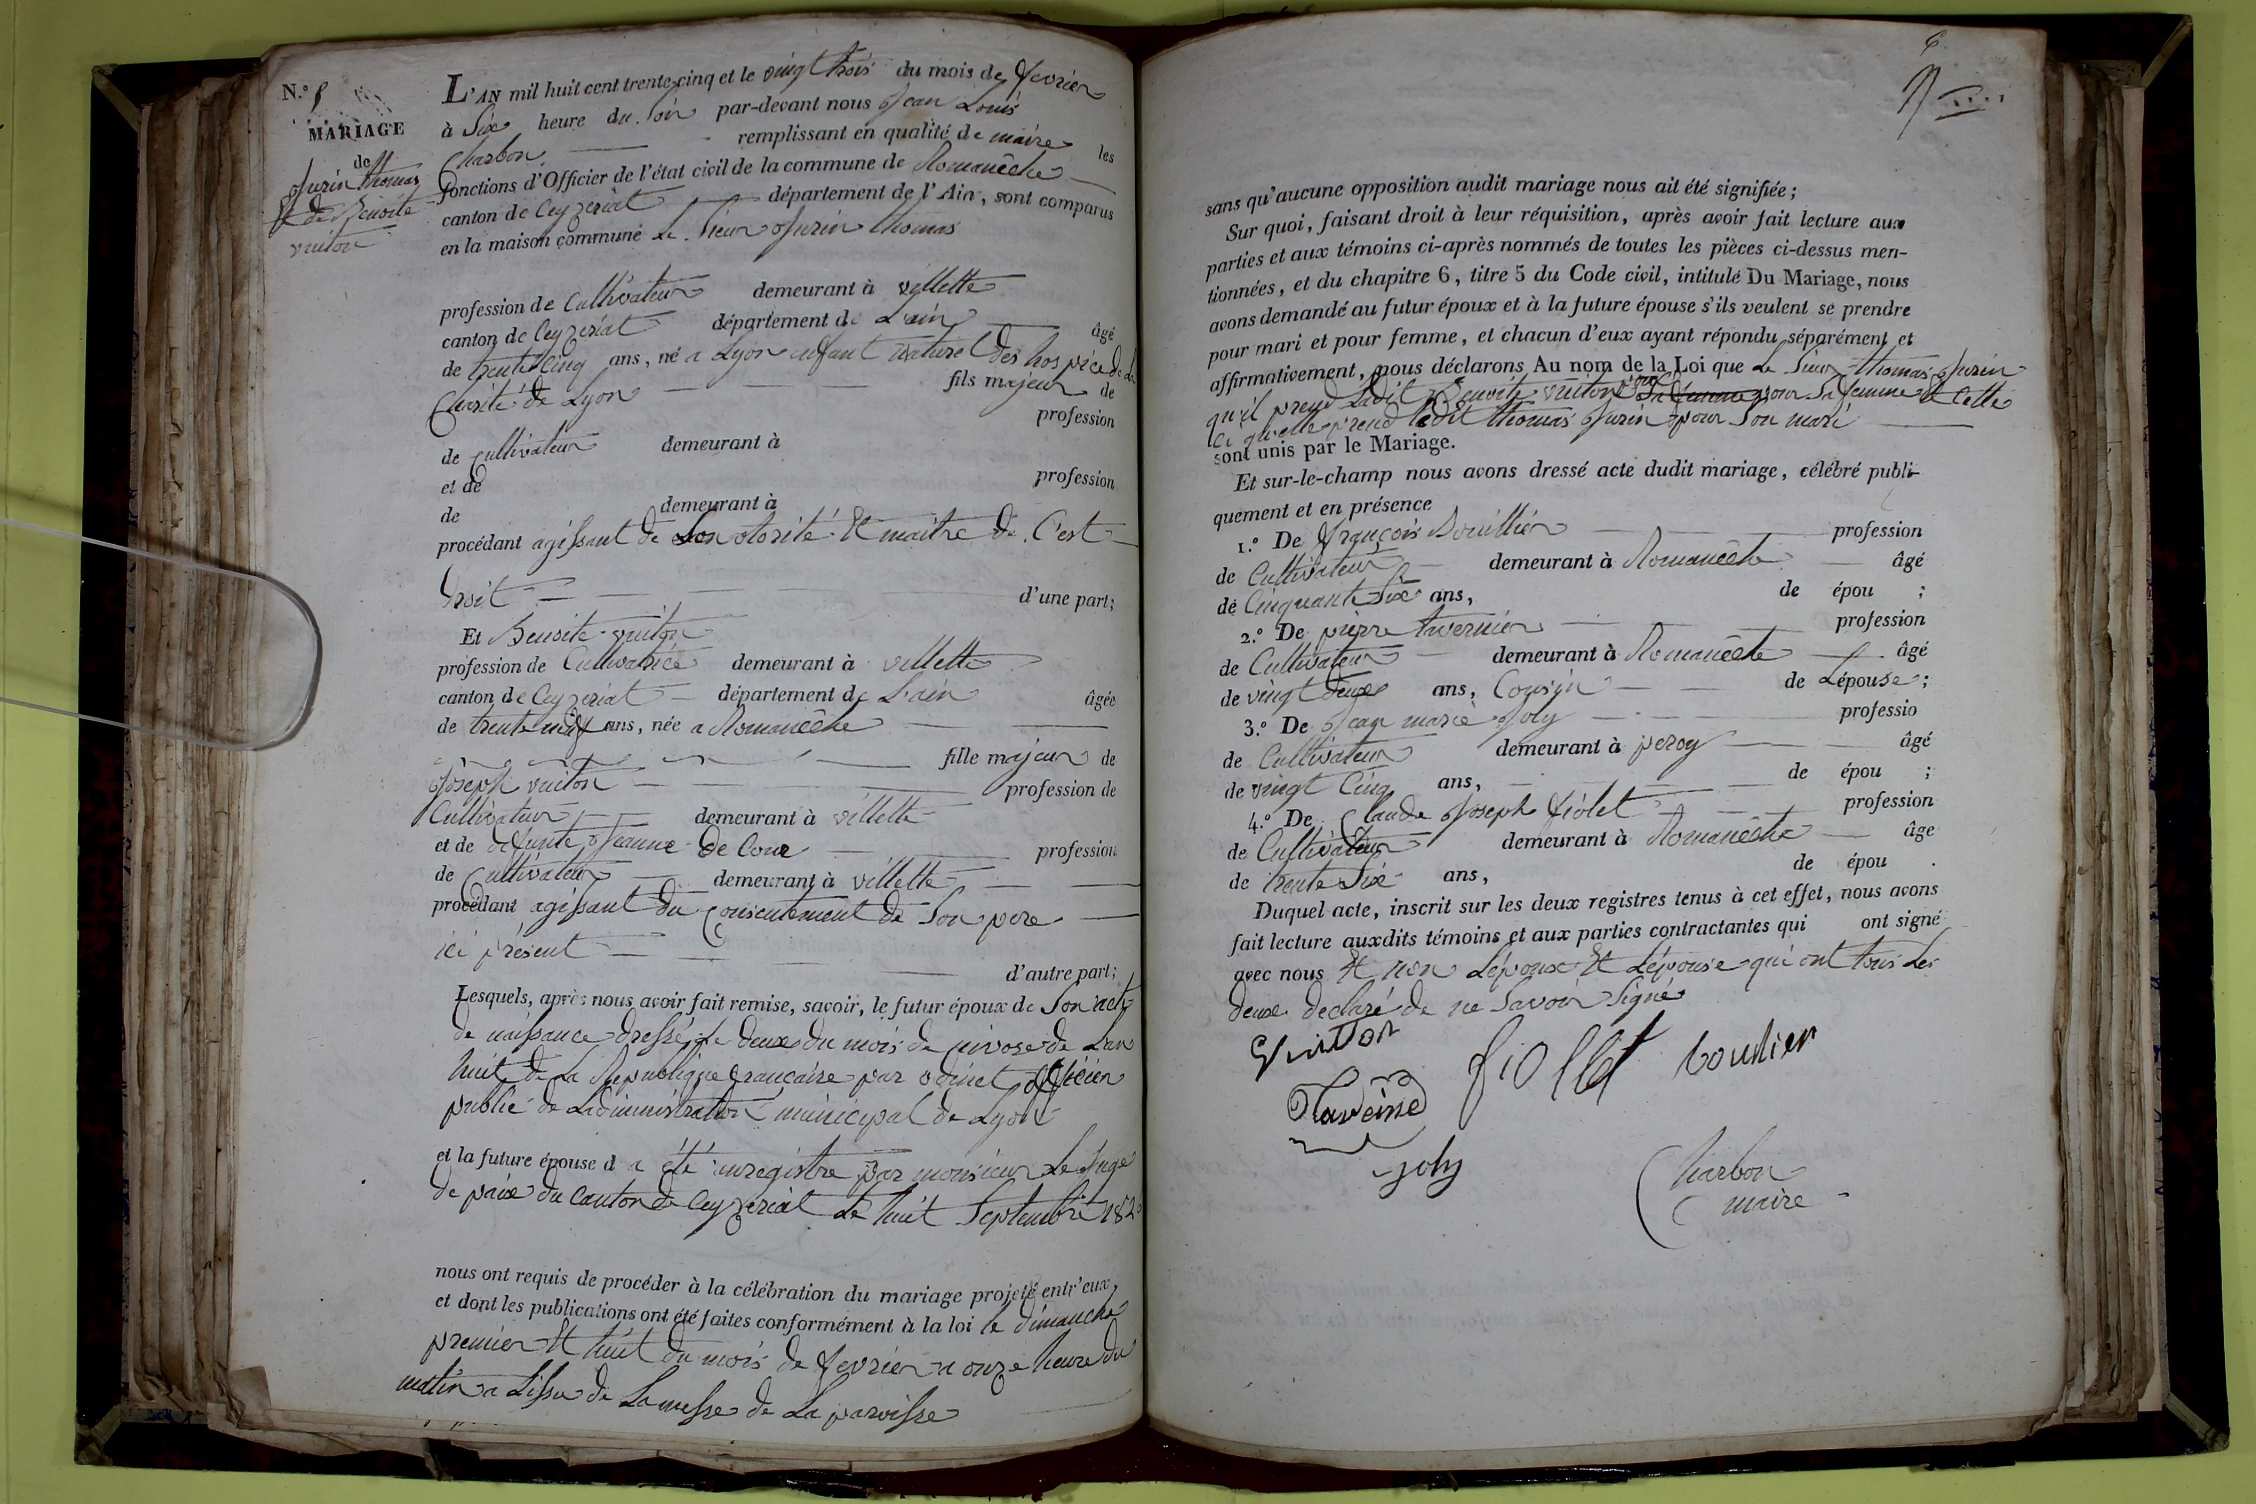 N.º
MARIAGE
de
Jurin thomas
Et de Benoite
vuiton
L'AN mil huit cent trente-cinq et le vingt trois du mois de fevrier
à Six heure du Soir par-devant nous Jean Louis
Charbon remplissant en qualité de maire les
fonctions d'Officier de l'état civil de la commune de Romanêche
canton de Ceyzeriat département de l'Ain, sont comparus
en la maison commune Le Sieur Jurin thomas
profession de Cultivateur demeurant à villette
canton de Ceyzeriat département de L'ain âgé
de trente Cinq ans, né a Lyon enfant naturel des hospice de la
Charité de Lyon fils majeur de
profession
de Cultivateur demeurant à
et de profession
de demeurant à
procédant agissant de Son otorité Et maitre de C'est
Droit d'une part;
Et Benoite vuiton
profession de Cultivatrice demeurant à villette
canton de Ceyzeriat département de L'ain âgée
de trente neuf ans, née a Romanêche
fille majeur de
Joseph vuiton profession de
Cultivateur demeurant à villette
et de defunte Jeanne De Cour profession
de Cultivateur demeurant à villette
procédant agissant du Consentement de Son pere
ici présent
d'autre part;
Lesquels, après nous avoir fait remise, savoir, le futur époux de Son acte
de naissance dressé Le deux du mois de nivose de Lan
huit de La Republique francaise par officier
public de Ladministration municipal de Lyon
et la future épouse d a été enregistre par monsieur Le Juge
de paix du Canton de Ceyzeriat Le huit Septembre
nous ont requis de procéder à la célébration du mariage projeté entr'eux,
et dont les publications ont été faites conformément à la loi le dimanche
premier Et huit du mois de fevrier a onze heure du
matin a Lissu de La messe de La paroisse
6
sans qu'aucune opposition audit mariage nous ait été signifiée;
Sur quoi, faisant droit à leur réquisition, après avoir fait lecture aux
parties et aux témoins ci-après nommés de toutes les pièces ci-dessus men-
tionnées, et du chapitre 6, titre 5 du Code civil, intitulé Du Mariage, nous
avons demandé au futur époux et à la future épouse s'ils veulent se prendre
pour mari et pour femme, et chacun d'eux ayant répondu séparément et
affirmativement, nous déclarons Au nom de la Loi que Le Sieur thomas Jurin
qu'il prend Ladit Benoite vuiton pour Sa femme Et Celle
Ci qu'elle prend ledit thomas Jurin pour Son mari
sont unis par le Mariage.
Et sur-le-champ nous avons dressé acte dudit mariage, célébré publi-
quement et en présence
1.º De françois Bouillier profession
de Cultivateur demeurant à Romanêche âgé
de Cinquante Six ans, de épou ;
2.º De pierre tavernier profession
de Cultivateur demeurant à Romanêche âgé
de vingt deux ans, Cousin de Lépouse;
3.º De Jean marie Joly professio
de Cultivateur demeurant à peroy âgé
de vingt Cinq ans, de épou ;
4.º De Claude Joseph fiolet profession
de Cultivateur demeurant à Romanêche âge
de trente Six ans, de épou .
Duquel acte, inscrit sur les deux registres tenus à cet effet, nous avons
fait lecture auxdits témoins et aux parties contractantes qui ont signé
avec nous Et non Lépoux Et Lépouse qui ont tous Les
deux declaré de ne Savoir Signé
Vuitton
fiollet
boullier
Taverne
joly
Charbon
maire